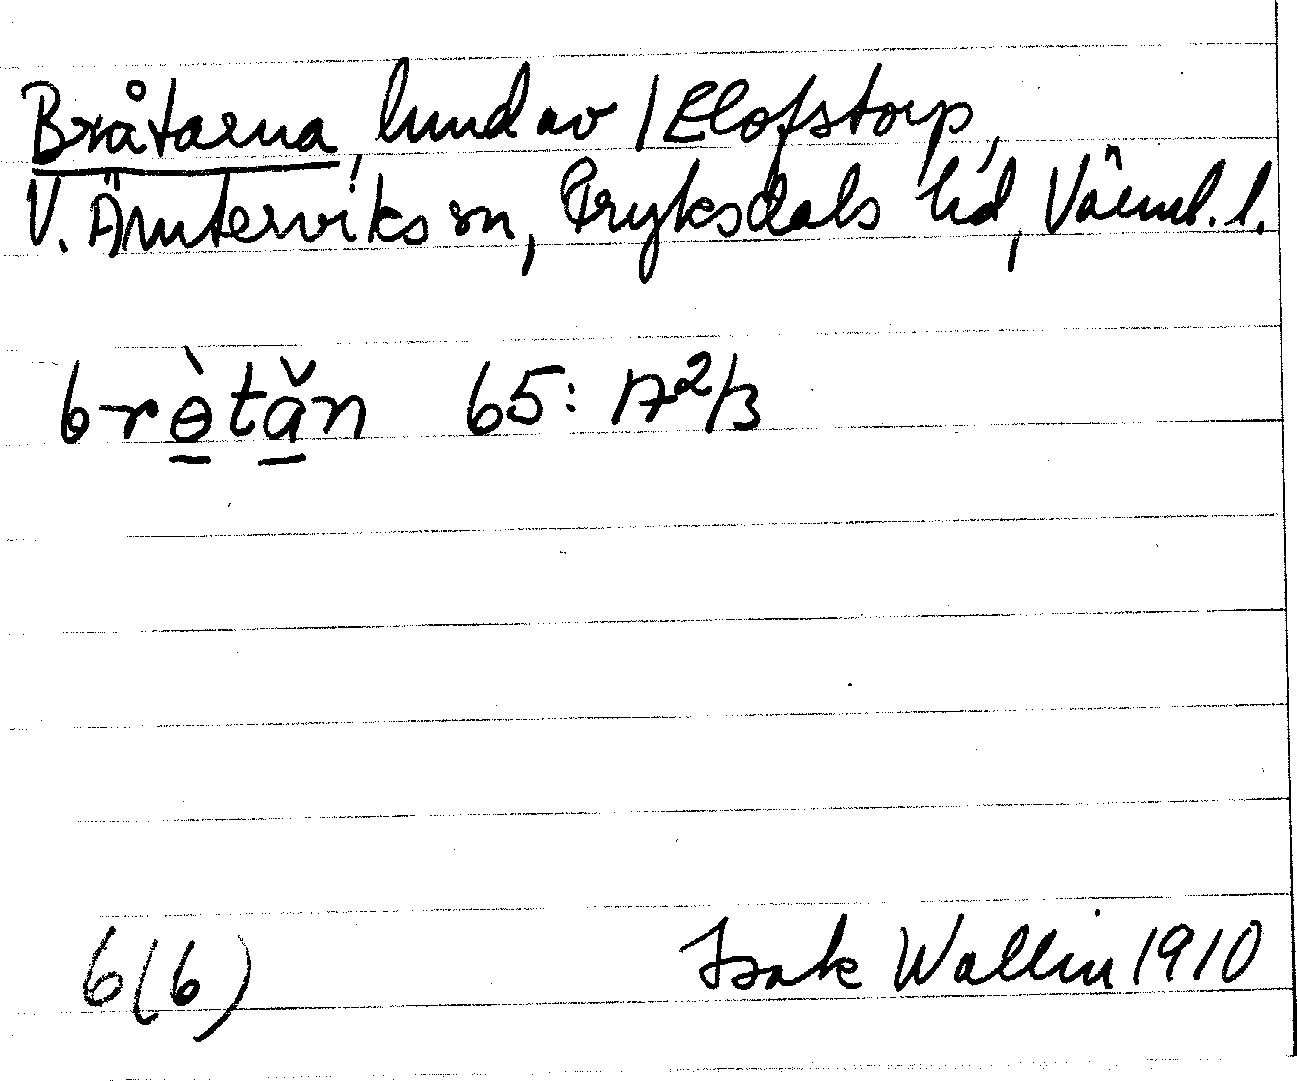 Bråtarna, hmd av 1 Elofstorp,
V. Ämterviks sn, Fryksdals hd, Värml. l.
brɵ̀tăn 65: A2/3
6(6) Isak Wallin 1910